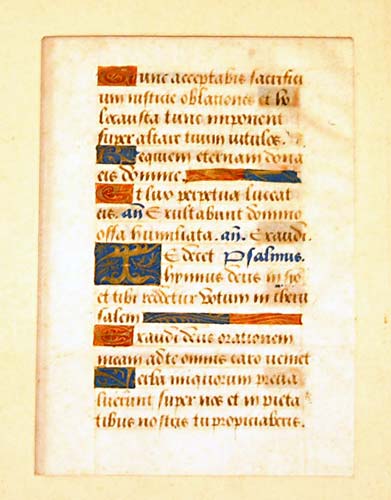 Tunc acceptabis sacrifici
um iusticie oblationes et ho
locausta tunc imponent
super altare tuum vitulos.
Requiem eternam dona
eis domine.
Et lux perpetua luceat
eis. añ Exultabunt domino
ossa humiliata. añ. Exaudi.
Te decet Psalmus.
hymnus deus in sio
et tibi reddetur votum in iheru
salem
Exaudi deus orationem
meam ad te omnis caro veniet
Verba iniquorum preva
luerunt super nos et impieta
tibus nostris tu propiciaberis.